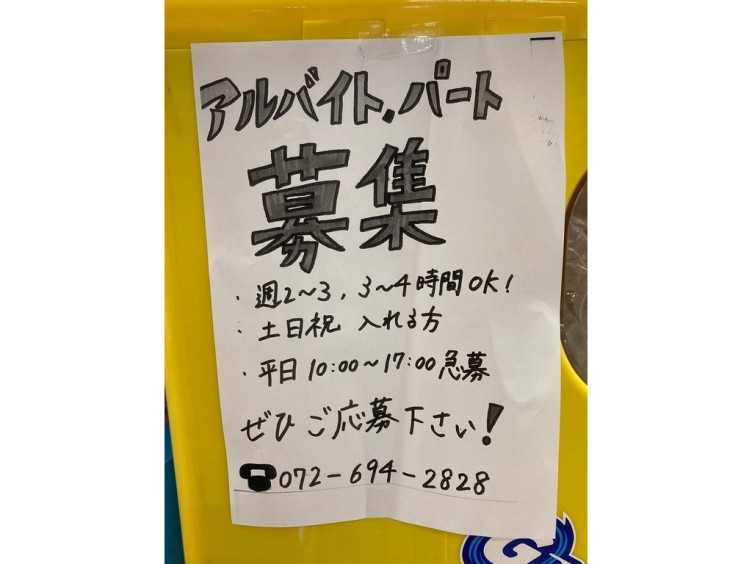 アルバイト.パート
募集
・週2〜3,3〜4時間OK!
・土日祝 入れる方
・平日10:00〜17:00急募
ぜひご応募下さい!
☎072-694-2828